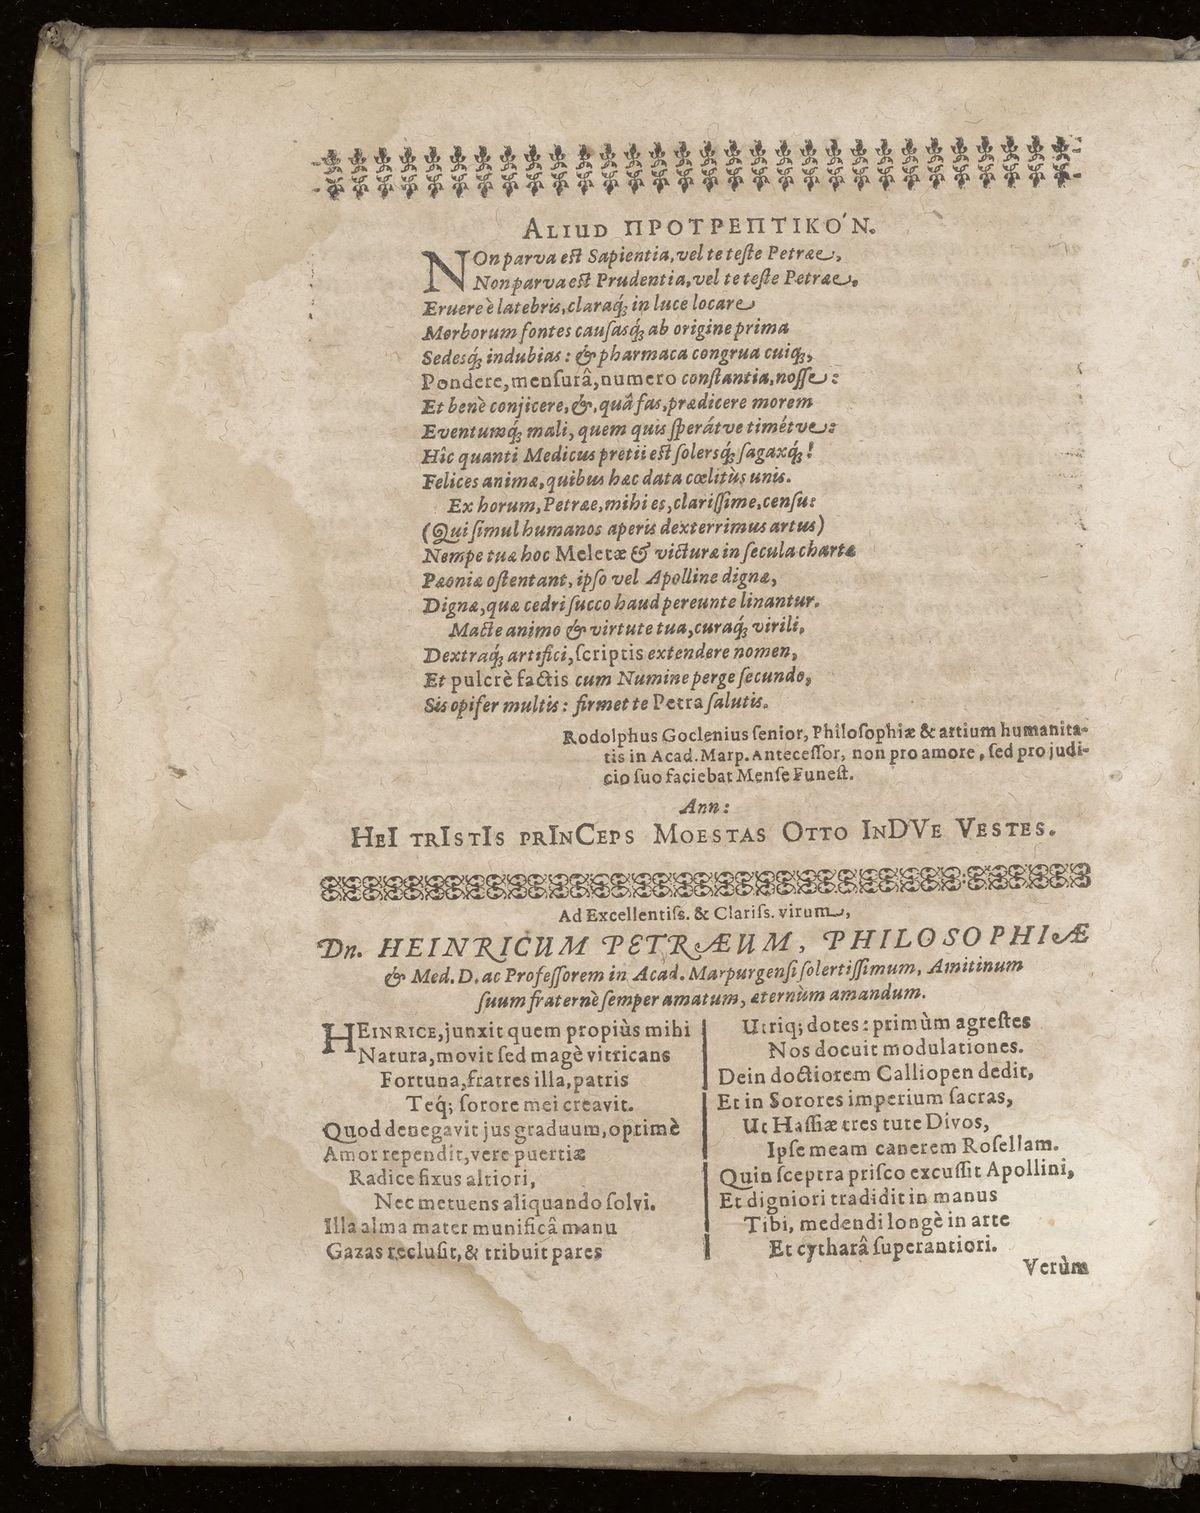 ALIUD ΠΡΟΤΡΕΠΤΙΚΌΝ.
NOn parva eſt Sapientia, vel te teſte Petræe,
Non parva eſt Prudentia, vel te teſte Petræe.
Eruere è latebris, claraq́ꝫ in luce locare
Morborum fontes cauſasq́ꝫ ab origine prima
Sedesq́ꝫ indubias: & pharmaca congrua cuiq́ꝫ,
Pondere, menſurâ, numero conſtantia, noſſe:
Et benè conjicere, &, quâ fas, prædicere morem
Eventumq́ꝫ mali, quem quis ſperátve timétve:
Hîc quanti Medicus pretii eſt ſolersq́ꝫ ſagaxq́ꝫ!
Felices animæ, quibus hæc data cœlitùs unis.
Ex horum, Petræe, mihi es, clariſſime, cenſu:
(Qui ſimul humanos aperis dexterrimus artus)
Nempe tuæ hoc Meletæ & victuræ in ſecula chartæ
Pæoniæ oſtentant, ipſo vel Apolline dignæ,
Dignæ, quæ cedri ſucco haud pereunte linantur.
Macte animo & virtute tua, curaq́ꝫ virili,
Dextraq́ꝫ artifici, ſcriptis extendere nomen,
Et pulcrè factis cum Numine perge ſecundo,
Sis opifer multis: firmet te Petra ſalutis.
Rodolphus Goclenius ſenior, Philoſophiæ & artium humanita-
tis in Acad. Marp. Anteceſſor, non pro amore, ſed pro judi-
cio ſuo faciebat Menſe Funeſt.
Ann:
HEI TRIſTIS PRINCEPS MOESTAS OTTO INDVE VESTES.
Ad Excellentiſs. & Clariſs. virum,
Dn. HEINRICUM PETRÆUM, PHILOSOPHIÆ
& Med. D. ac Profeſſorem in Acad. Marpurgenſi ſolertiſſimum, Amitinum
ſuum fraternè ſemper amatum, æternùm amandum.
HEINRICE, junxit quem propiùs mihi
Natura, movit ſed magè vitricans
Fortuna, fratres illa, patris
Teq́; ſorore mei creavit.
Quod denegavit jus graduum, optimè
Amor rependit, vere puertiæ
Radice fixus altiori,
Nec metuens aliquando ſolvi.
Illa alma mater munificâ manu
Gazas recluſit, & tribuit pares
Utriq; dotes: primùm agreſtes
Nos docuit modulationes.
Dein doctiorem Calliopen dedit,
Et in Sorores imperium ſacras,
Ut Haſſiæ tres tute Divos,
Ipſe meam canerem Roſellam.
Quin ſceptra priſco excuſſit Apollini,
Et digniori tradidit in manus
Tibi, medendi longè in arte
Et cytharâ ſuperantiori.
Verùm